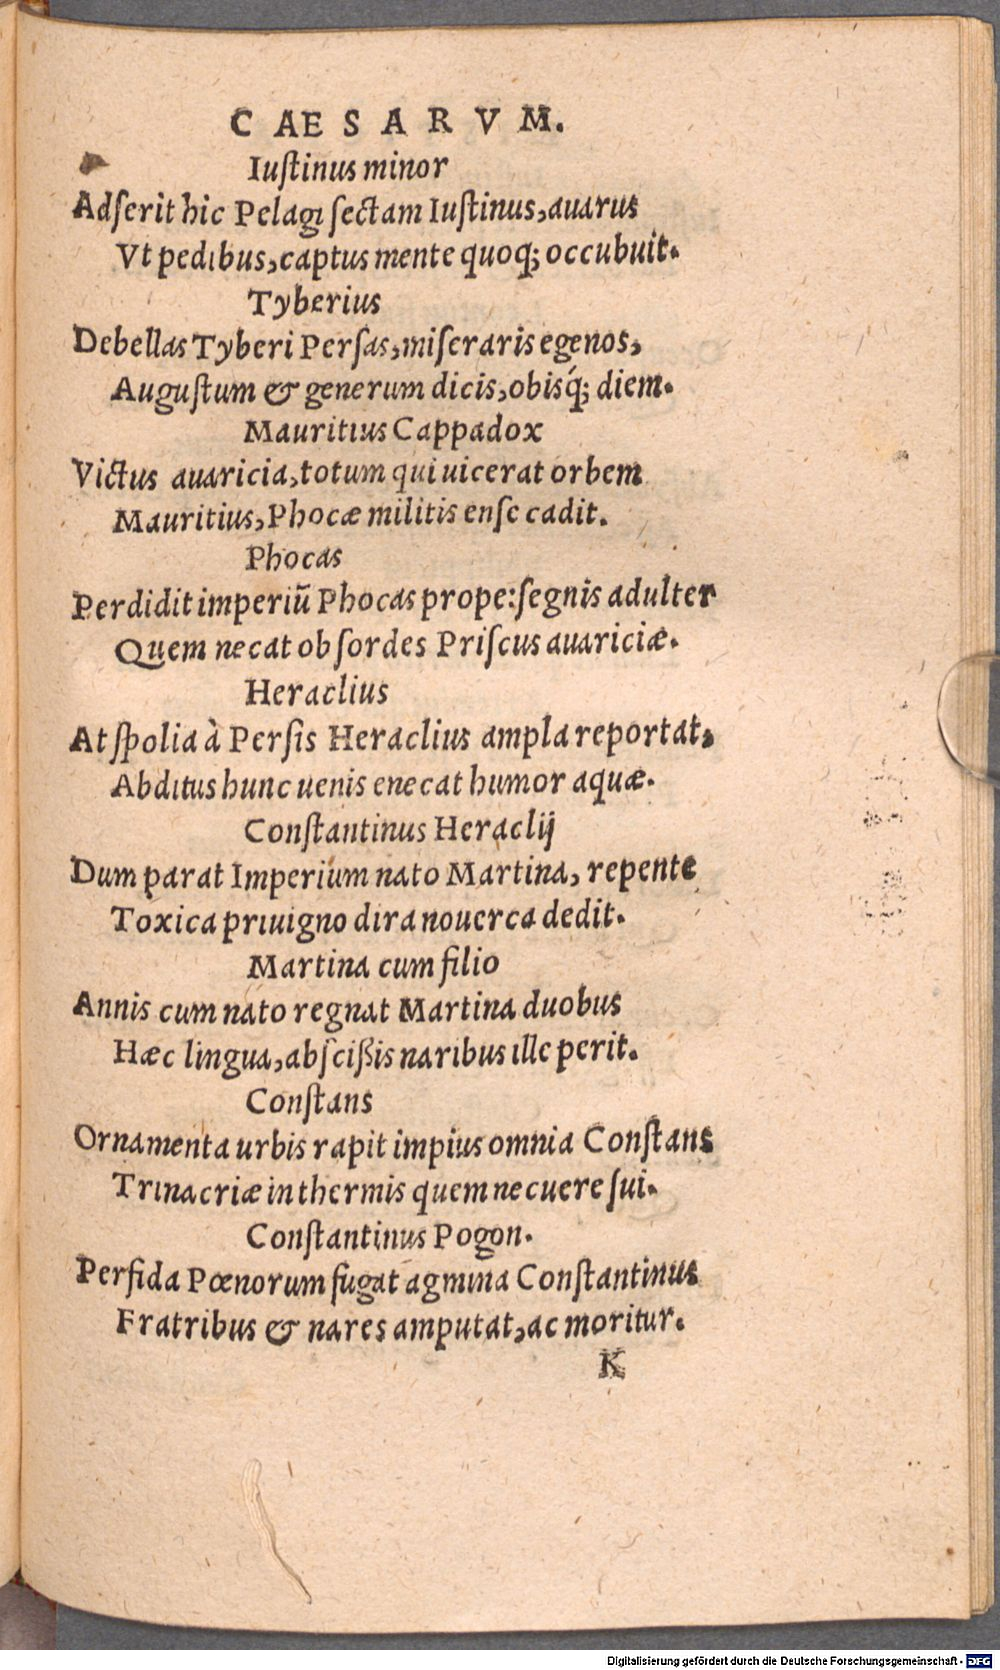 CAESARVM.
Iuſtinus minor
Adſerit hic Pelagi ſectam Iuſtinus, auarus
Vt pedibus, captus mente quoq; occubuit.
Tyberius
Debellas Tyberi Perſas, miſeraris egenos,
Auguſtum & generum dicis, obisq́; diem.
Mauritius Cappadox
Victus auaricia, totum qui uicerat orbem
Mauritius, Phocæ militis enſe cadit.
Phocas
Perdidit imperiū Phocas prope: ſegnis adulter
Quem necat ob ſordes Priſcus auariciæ.
Heraclius
At ſpolia à Perſis Heraclius ampla reportat,
Abditus hunc uenis enecat humor aquæ.
Conſtantinus Heraclij
Dum parat Imperium nato Martina, repente
Toxica priuigno dira nouerca dedit.
Martina cum filio
Annis cum nato regnat Martina duobus
Hæc lingua, abſciſsis naribus ille perit.
Conſtans
Ornamenta urbis rapit impius omnia Conſtans
Trinacriæ in thermis quem necuere ſui.
Conſtantinus Pogon.
Perfida Pœnorum fugat agmina Conſtantinus
Fratribus & nares amputat, ac moritur.
K
Digitalisierung gefördert durch die Deutsche Forschungsgemeinschaft - DFG